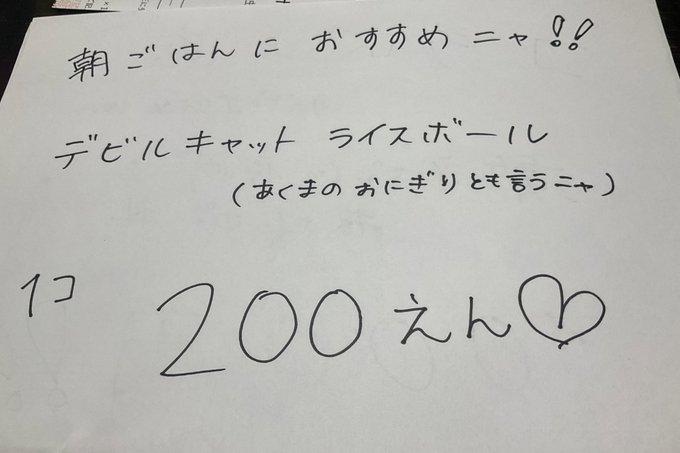 朝ごはんに おすすめ ニャ!!
デビルキャット ライスボール
(あくまの おにぎり とも言うニャ)
1コ 200えん♡